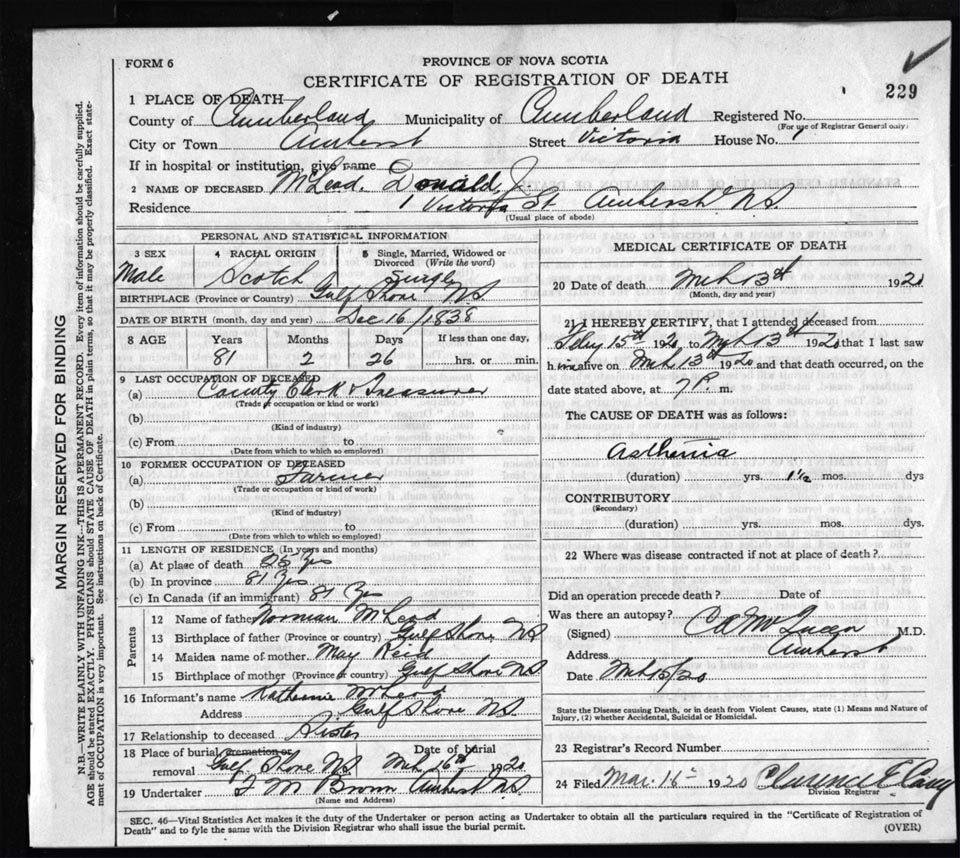 FORM 6
PROVINCE OF NOVA SCOTIA
CERTIFICATE OF REGISTRATION OF DEATH
229
1 PLACE OF DEATH
County of Cumberland Municipality of Cumberland Registered No.
(For use of Registrar General only)
City or Town Amherst Street Victoria House No. 1
If in hospital or institution, give name
2 NAME OF DECEASED McLeod, Donald, J.
Residence 1 Victoria St Amherst N.S.
(Usual place of abode)
PERSONAL AND STATISTICAL INFORMATION
3 SEX 4 RACIAL ORIGIN 5 Single, Married, Widowed or Divorced (Write the word)
Male Scotch Single
BIRTHPLACE (Province or Country) Gulf Shore N.S.
DATE OF BIRTH (month, day and year) Dec 16/1838
8 AGE Years Months Days If less than one day,
81 2 26 hrs. or min.
9 LAST OCCUPATION OF DECEASED
(a) County Clerk & Treasurer
(Trade or occupation or kind of work)
(b)
(Kind of industry)
(c) From to
(Date from which to which so employed)
10 FORMER OCCUPATION OF DECEASED
(a) Farmer
(Trade or occupation or kind of work)
(b)
(Kind of industry)
(c) From to
(Date from which to which so employed)
11 LENGTH OF RESIDENCE (In years and months)
(a) At place of death yrs
(b) In province 81 yrs
(c) In Canada (if an immigrant) 81 yrs
Parents
12 Name of father Norman McLeod
13 Birthplace of father (Province or country) Gulf Shore NS
14 Maiden name of mother May Reid
15 Birthplace of mother (Province or country) Gulf Shore NS
16 Informant's name Katherine McLeod
Address Gulf Shore NS.
17 Relationship to deceased Sister
18 Place of burial cremation or Date of burial
removal Gulf Shore NS. Mch 16th 1920
19 Undertaker F M Brown Amherst N.S.
(Name and Address)
MEDICAL CERTIFICATE OF DEATH
20 Date of death Mch 13th 1920
(Month, day and year)
21 I HEREBY CERTIFY, that I attended deceased from
Feby 15th 1920 to Mch 13th 1920 that I last saw
him alive on Mch 13th 1920 and that death occurred, on the
date stated above, at 7 P. m.
The CAUSE OF DEATH was as follows:
Asthenia
(duration) yrs. 1½ mos. dys
CONTRIBUTORY
(Secondary)
(duration) yrs. mos. dys.
22 Where was disease contracted if not at place of death?
Did an operation precede death? Date of
Was there an autopsy?
(Signed) M.D.
Address Amherst
Date Mch 15/20
State the Disease causing Death, or in death from Violent Causes, state (1) Means and Nature of
Injury, (2) whether Accidental, Suicidal or Homicidal.
23 Registrar's Record Number
24 Filed Mar. 16 1920 Clarence E Casey
Division Registrar
SEC. 46—Vital Statistics Act makes it the duty of the Undertaker or person acting as Undertaker to obtain all the particulars required in the "Certificate of Registration of
Death" and to fyle the same with the Division Registrar who shall issue the burial permit.
(OVER)
MARGIN RESERVED FOR BINDING
N.B.—WRITE PLAINLY WITH UNFADING INK—THIS IS A PERMANENT RECORD. Every item of information should be carefully supplied.
AGE should be stated EXACTLY. PHYSICIANS should STATE CAUSE OF DEATH in plain terms, so that it may be properly classified. Exact statement of OCCUPATION is very important. See instructions on back of Certificate.